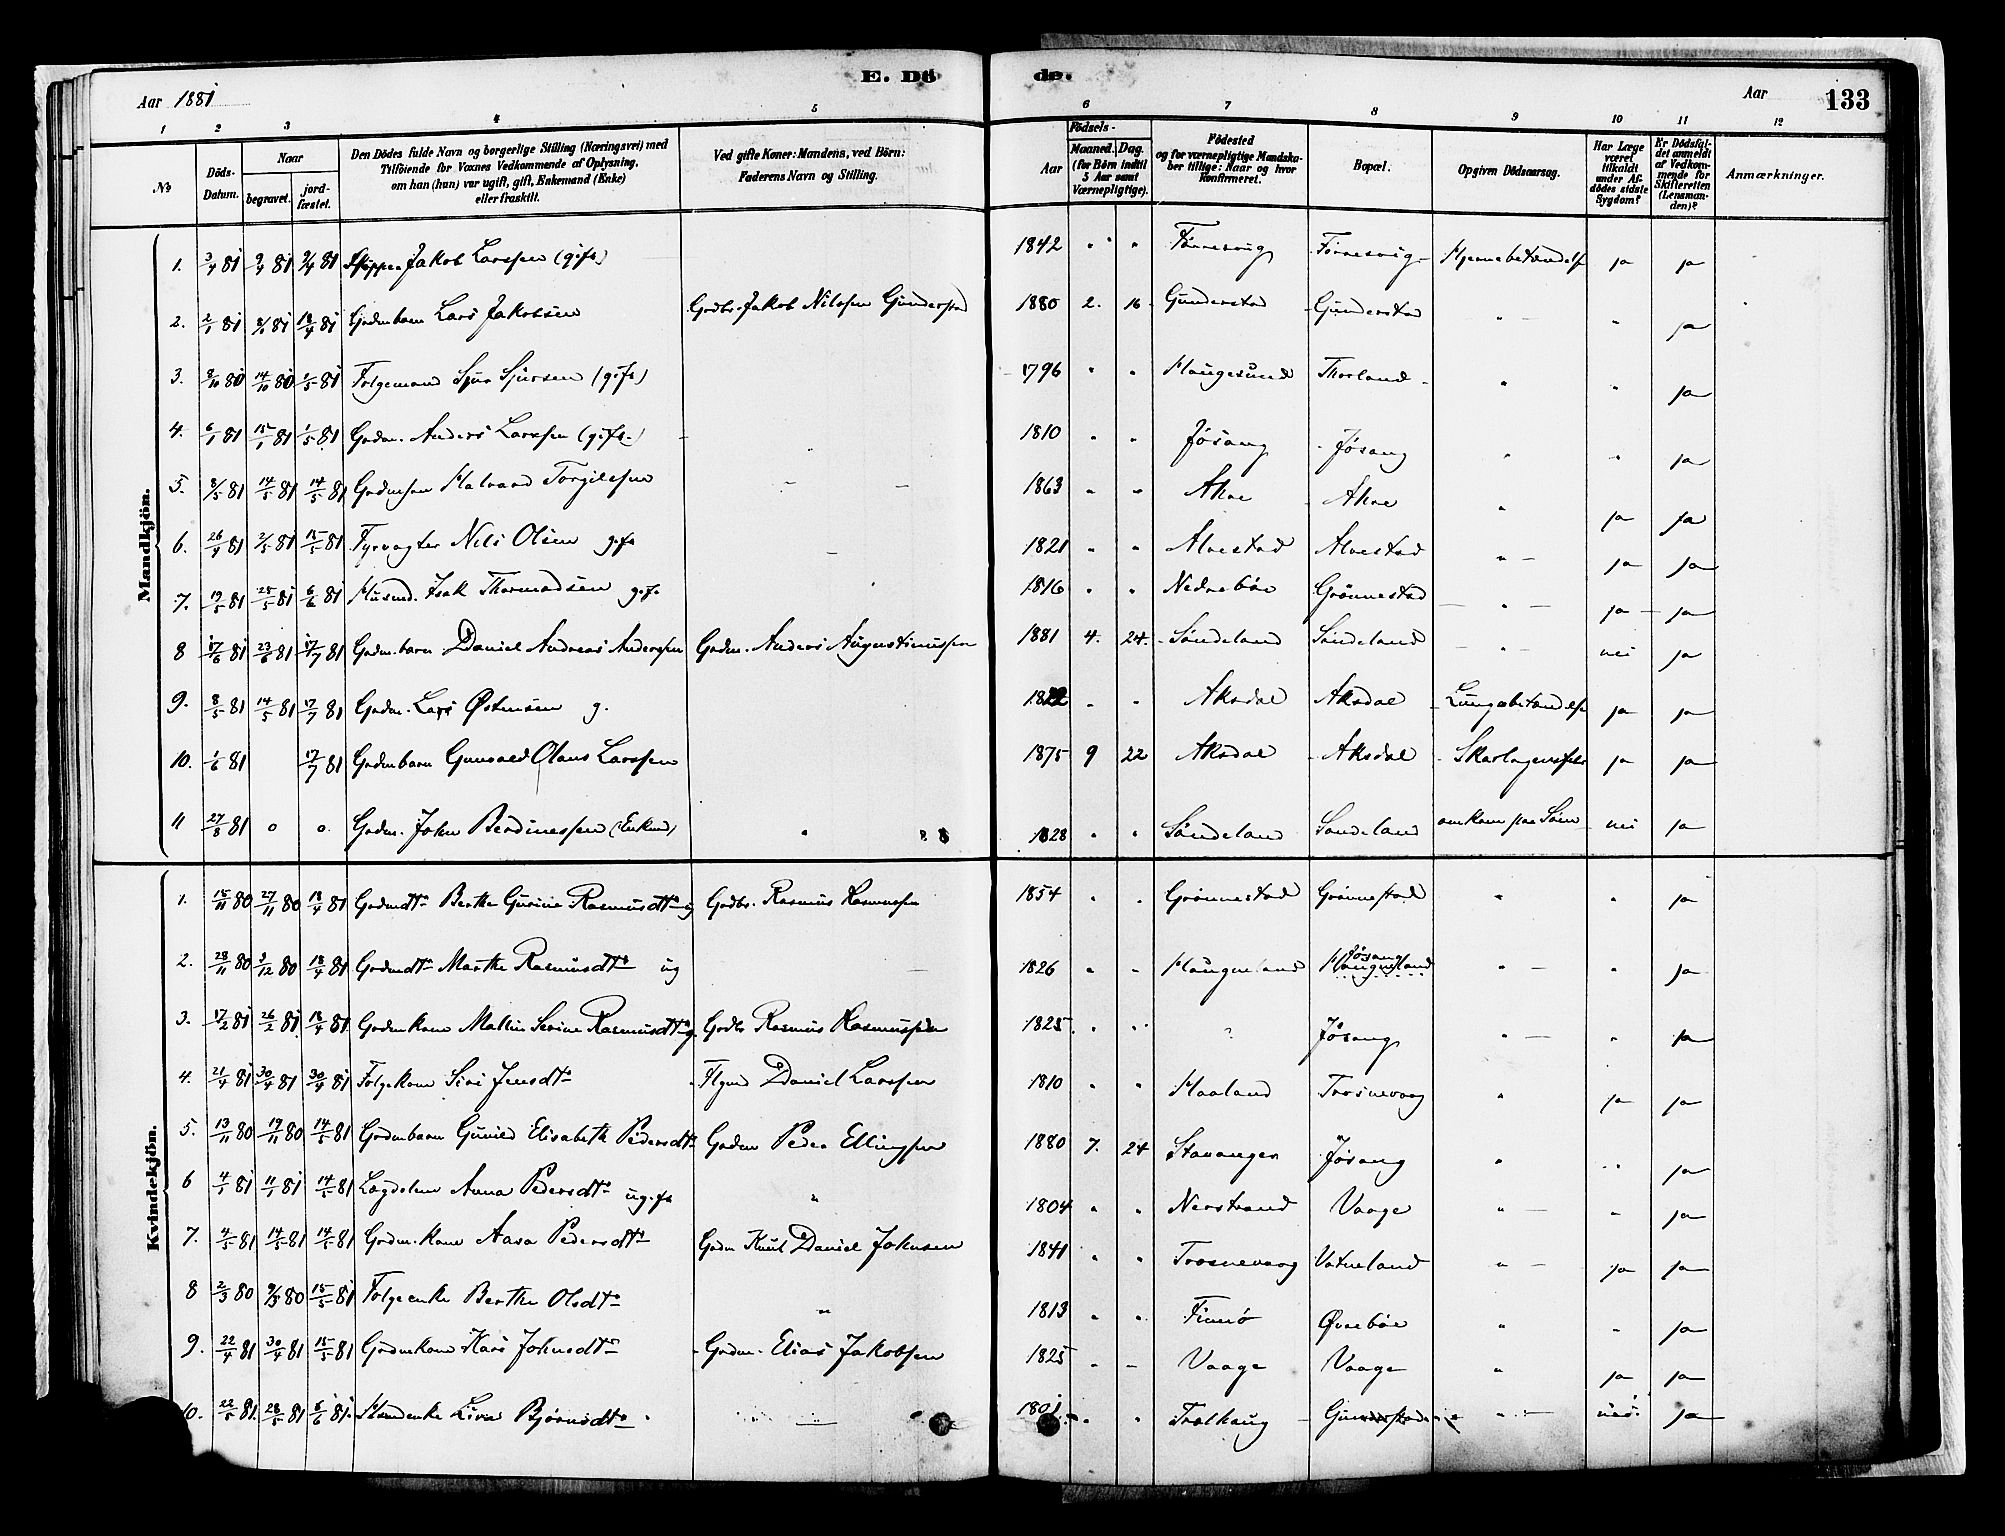 E. Dö de.
Aar 1881 Aar 133
1 2 3 4 5 6 7 8 9 10 11 12
№ Döds-Datum. Naar begravet. jord-fæstet. Den Dödes fulde Navn og borgerlige Stilling (Næringsvei) med Tilföiende for Voxnes Vedkommende af Oplysning, om han (hun) var ugift, gift, Enkemand (Enke) eller fraskilt. Ved gifte Koner: Mandens, ved Börn: Faderens Navn og Stilling. Födsels- Aar Maaned. Dag. (for Börn indtil 5 Aar samt Værnepligtige). Födested og for værnepligtige Mandskaber tillige: Naar og hvor konfirmeret. Bopæl. Opgiven Dödsaarsag. Har Læge været tilkaldt under Afdödes sidste Sygdom? Er Dödsfaldet anmeldt af Vedkommende for Skifteretten (Lensmanden)? Anmærkninger.
Mandkjön.
1. 3/4 81 9/4 81 9/4 81 Jakob Larssen (gift) 1842 " " ja ja
2. 2/1 81 8/1 81 18/4 81 Gadmbarn Lars Jakobsen Gadbr. Jakob Nilssen Gunderstad 1880 2. 16. Gunderstad Gunderstad " " ja
3. 8/10 80 14/10 80 1/5 81 Folgemand Sjur Sjursen (gift) 1796 " " Haugesund Thorland " " ja
4. 6/1 81 15/1 81 1/5 81 Gadm. Anders Larssen (gift.) 1810 " " Jösang Jösang " " ja
5. 8/5 81 14/5 81 14/5 81 Gadmsøn Halvard Torgilssen 1863 " " " ja ja
6. 26/4 81 2/5 81 15/5 81 Fyrvogter Nils Olsen gift 1821 " " Alvestad Alvestad " ja ja
7. 19/5 81 25/5 81 6/6 81 Husmd. Isak Thormodsen gift 1816 " " Nedrebøe Grönnestad " ja ja
8 17/6 81 23/6 81 17/7 81 Gadm.barn Daniel Andreas Anderssen Gadm. Anders Augustinussen 1881 4. 24. Söndeland Söndeland " nei ja
9. 8/5 81 14/5 81 17/7 81 Gadm. Lars Østensen g. 1822 " " Aksdal Aksdal Lungebetændelse ja ja
10. 1/6 81 17/7 81 Gadmbarn Gunvald Olaus Larssen 1875 9 22 Aksdal Aksdal Skarlagensfeber ja ja
11 27/8 81 o o Gadm. John Berdinessen (Enkmd) " 1828 " " Söndeland Söndeland omkom paa Söen nei ja
Kvindekjön.
1. 15/11 80 27/11 80 18/4 81 Gadmdtr Berthe Gurine Rasmusdtr ug Gadbr. Rasmus Rasmussen 1854 " " Grönnestad Grönnestad " " ja
2. 28/11 80 3/12 80 18/4 81 Gadmdtr Marthe Rasmusdtr ug 1826 " " Haugneland Jösang Haugneland " " ja
3. 17/2 81 26/2 81 18/4 81 Gadmkone Mallin Serine Rasmusdtr g. Gadbr Rasmus Rasmussen 1825 " " " Jösang " " ja
4. 21/4 81 30/4 81 30/4 81 Folgekone Siri Jensdtr Daniel Larssen 1810 " " Haaland Trosnevaag " ja ja
5. 13/11 80 19/11 80 14/5 81 Gadmbarn Gunild Elisabeth Pedersdtr Gadm Peder Ellingsen 1880 7. 24 Stavanger Jösang " " ja
6 4/1 81 11/1 81 14/5 81 Lægdslem Anna Pedersdtr ugift " 1804 " " Nerstrand Vaage " " ja
7. 4/5 81 14/5 81 14/5 81 Gadm. kone Aasa Pedersdtr Gadm Knut Daniel Johnsen 1841 " " Trosnevaag Vatneland " ja ja
8 2/3 80 9/3 80 15/5 81 Folgeenke Berthe Olsdtr " 1813 " " Finnö Øvrebøe " " ja
9. 22/4 81 30/4 81 15/5 81 Gadmkone Kari Johnsdtr Gadm. Elias Jakobsen 1825 " Vaage Vaage " ja ja
10. 22/5 81. 28/5 81 6/6 81. Bjørnsdtr 1801 " " Tralhaug Gunderstad " nei ja